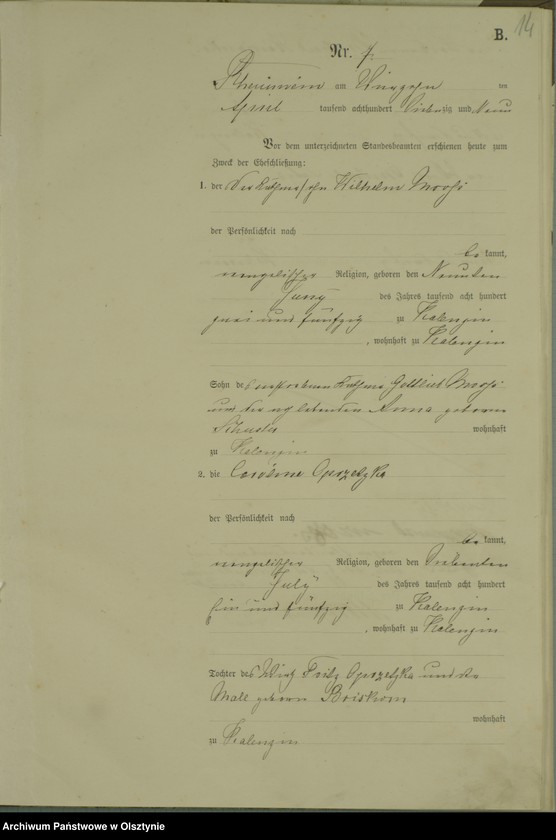 14
B.
Nr. 7.
am
ten
April tausend achthundert siebenzig und neun
Vor dem unterzeichneten Standesbeamten erschienen heute zum
Zweck der Eheschließung:
1. der Wilhelm
der Persönlichkeit nach
be kannt,
evangelischer Religion, geboren den Neunten
Juny des Jahres tausend acht hundert
zwei und fünfzig zu Kalenzin
, wohnhaft zu Kalenzin
Sohn des verstorbenen Gottlieb
und der Anna geborene
wohnhaft
zu Kalenzin
2. die Caroline Oprzetzka
der Persönlichkeit nach
be kannt,
evangelischer Religion, geboren den
July des Jahres tausend acht hundert
Ein und fünfzig zu Kalenzin
, wohnhaft zu Kalenzin
Tochter des Wirth Fritz Oprzetzka und der
geborene
wohnhaft
zu Kalenzin
Archiwum Państwowe w Olsztynie